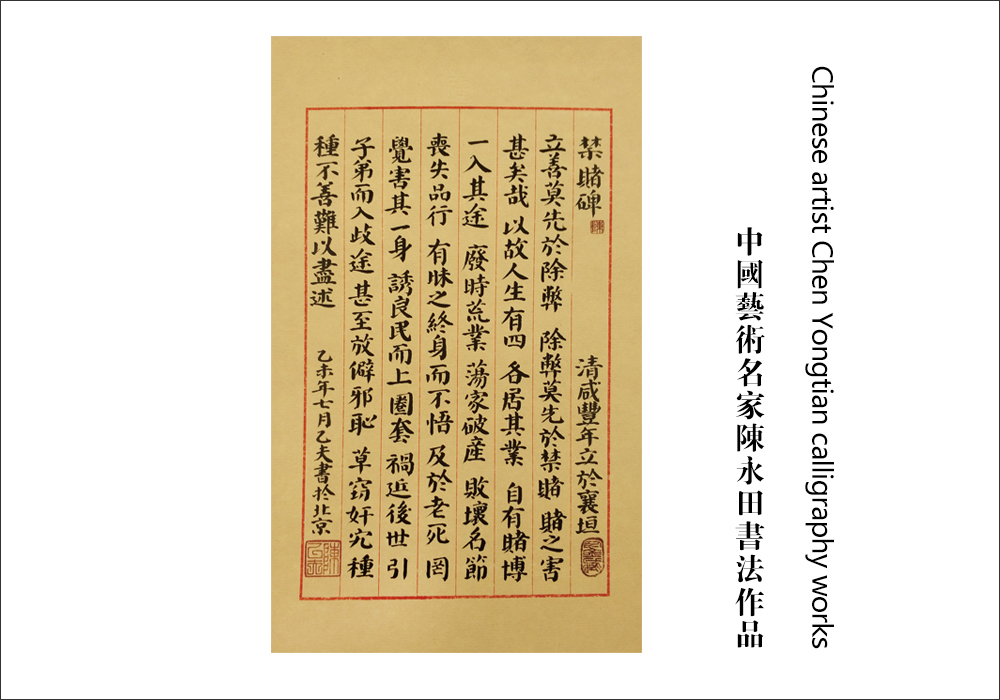 Chinese artist Chen Yongtian calligraphy works
中國藝術名家陳永田書法作品
禁賭碑 清咸豐年立於襄垣
立善莫先於除弊 除弊莫先於禁賭 賭之害
甚矣哉 以故人生有四 各居其業 自有賭博
一入其途 廢時荒業 蕩家破產 敗壞名節
喪失品行 有昧之終身而不悟 及於老死 罔
覺害其一身 誘良民而上圈套 禍近後世 引
子弟而入歧途 甚至放僻邪恥 草窃奸宄 種
種不善難以盡述 乙未年七月乙夫書於北京